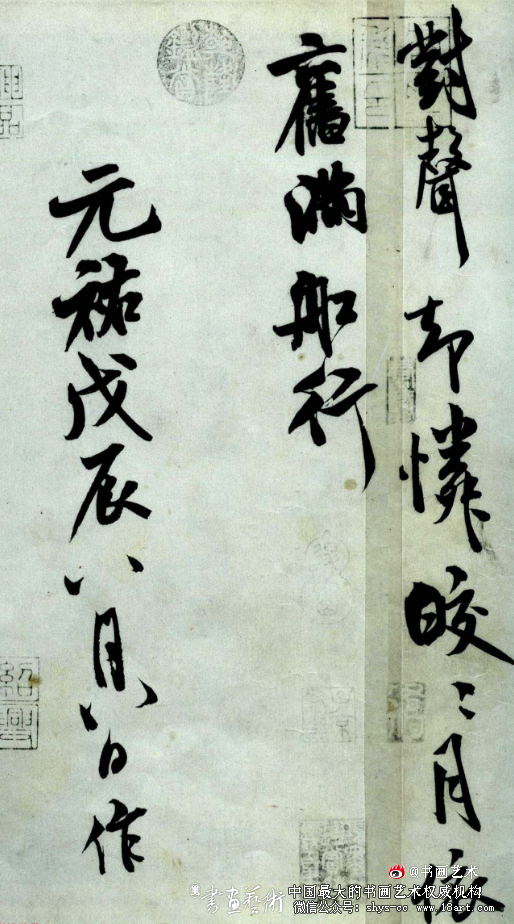 對聲却憐皎〻月依
舊滿船行
元祐戊辰八月八日作
紹興
@书画艺术
書畫藝術
中国最大的书画艺术权威机构
微信公众号：shys-cc www.18art.com